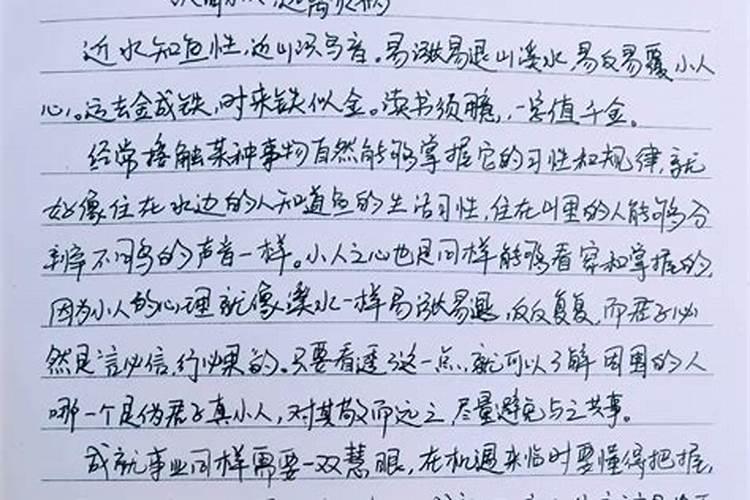 近水知鱼性,近山识鸟音。易涨易退山溪水,易反易覆小人
心。运去金成铁,时来铁似金。读书须用意,一字值千金。
经常接触某种事物自然能够掌握它的习性和规律,就
好像住在水边的人知道鱼的生活习性,住在山里的人能够分
辨不同鸟的声音一样。小人之心也是同样能够看穿和掌握的,
因为小人的心理就像溪水一样易涨易退,反反复复,而君子必
然是言必信,行必果的。只要看透了这一点,就可以了解周围的人
哪一个是伪君子真小人,对其敬而远之,尽量避免与之共事。
成就事业同样需要一双慧眼,在机遇来临时要懂得把握,